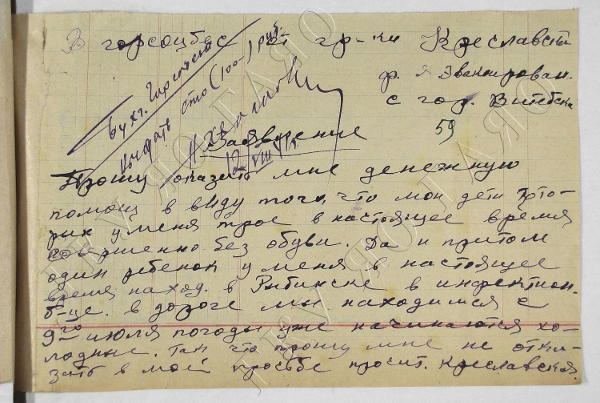 В горсобес от гр-ки Креславск
ф. Я Эвакуирован.
с гор. Витебска
59
Бухг. Горсобеса
выдать сто (100-) руб.
12/VIII
Заявление
Прошу оказать мне денежную
помощ в виду того, что мои дети кото-
рих у меня трое в настоящее время
совершенно без обуви. Да и притом
один ребенок у меня в настоящее
время наход. в Рыбинске в инфекцион.
б-це. в дороге мы находимся с
9го июля погоды уже начинаются хо-
лодные. Так что прошу мне не отка-
зать в моей просьбе просит. Креславская.